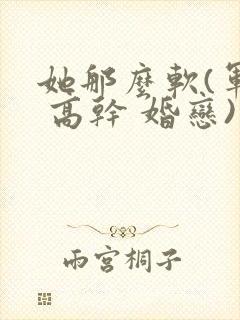 她那麼軟(軍
高幹 婚戀)
雨宮桐子